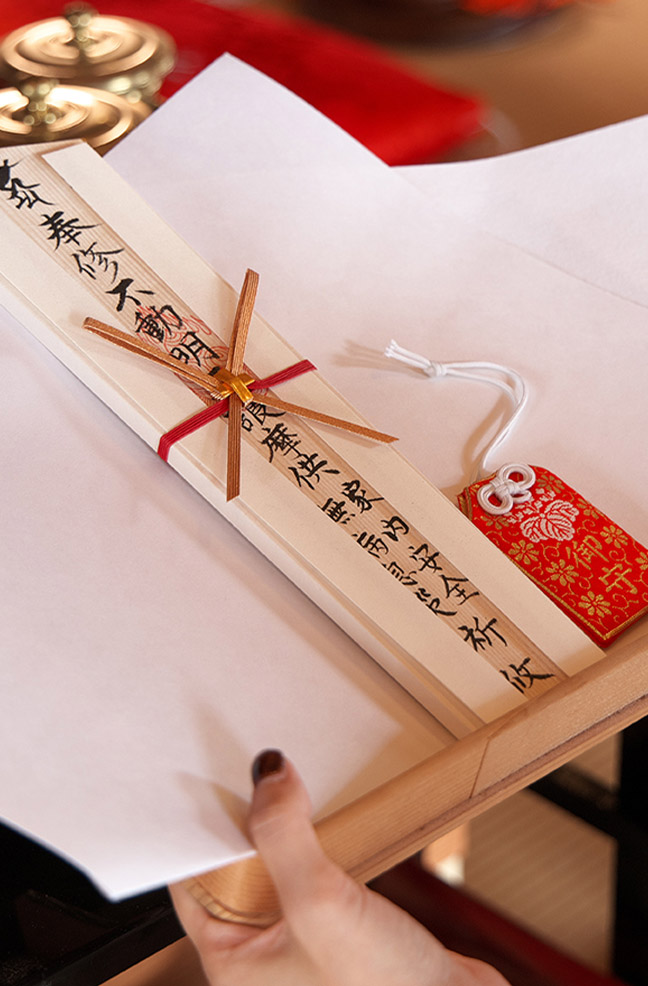 奉修不動明
護摩供
家内安全
無病息災
祈攸
御守